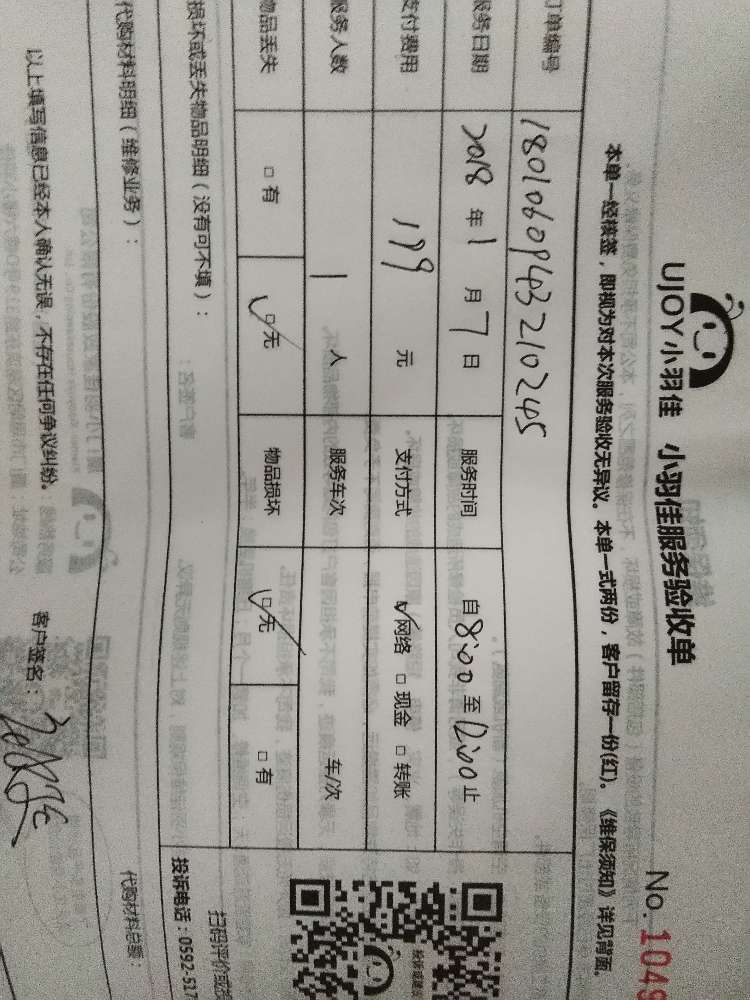 UJOY小羽佳 小羽佳服务验收单
No. 1049
本单一经核签，即视为对本次服务验收无异议。本单一式两份，客户留存一份(红)。《维保须知》详见背面。
订单编号 1801060943210245
服务日期 2018 年 1 月 7 日 服务时间 自 8:00 至 12:00 止
支付费用 199 元 支付方式 ☑网络 □现金 □转账
服务人数 1 人 服务车次 车/次
物品丢失 □有 ☑无 物品损坏 ☑无 □有
损坏或丢失物品明细（没有可不填）：
扫码评价或投
投诉电话：0592-517
代购材料明细（维修业务）： 代购材料总额：
以上填写信息已经本人确认无误，不存在任何争议纠纷。 客户签名：